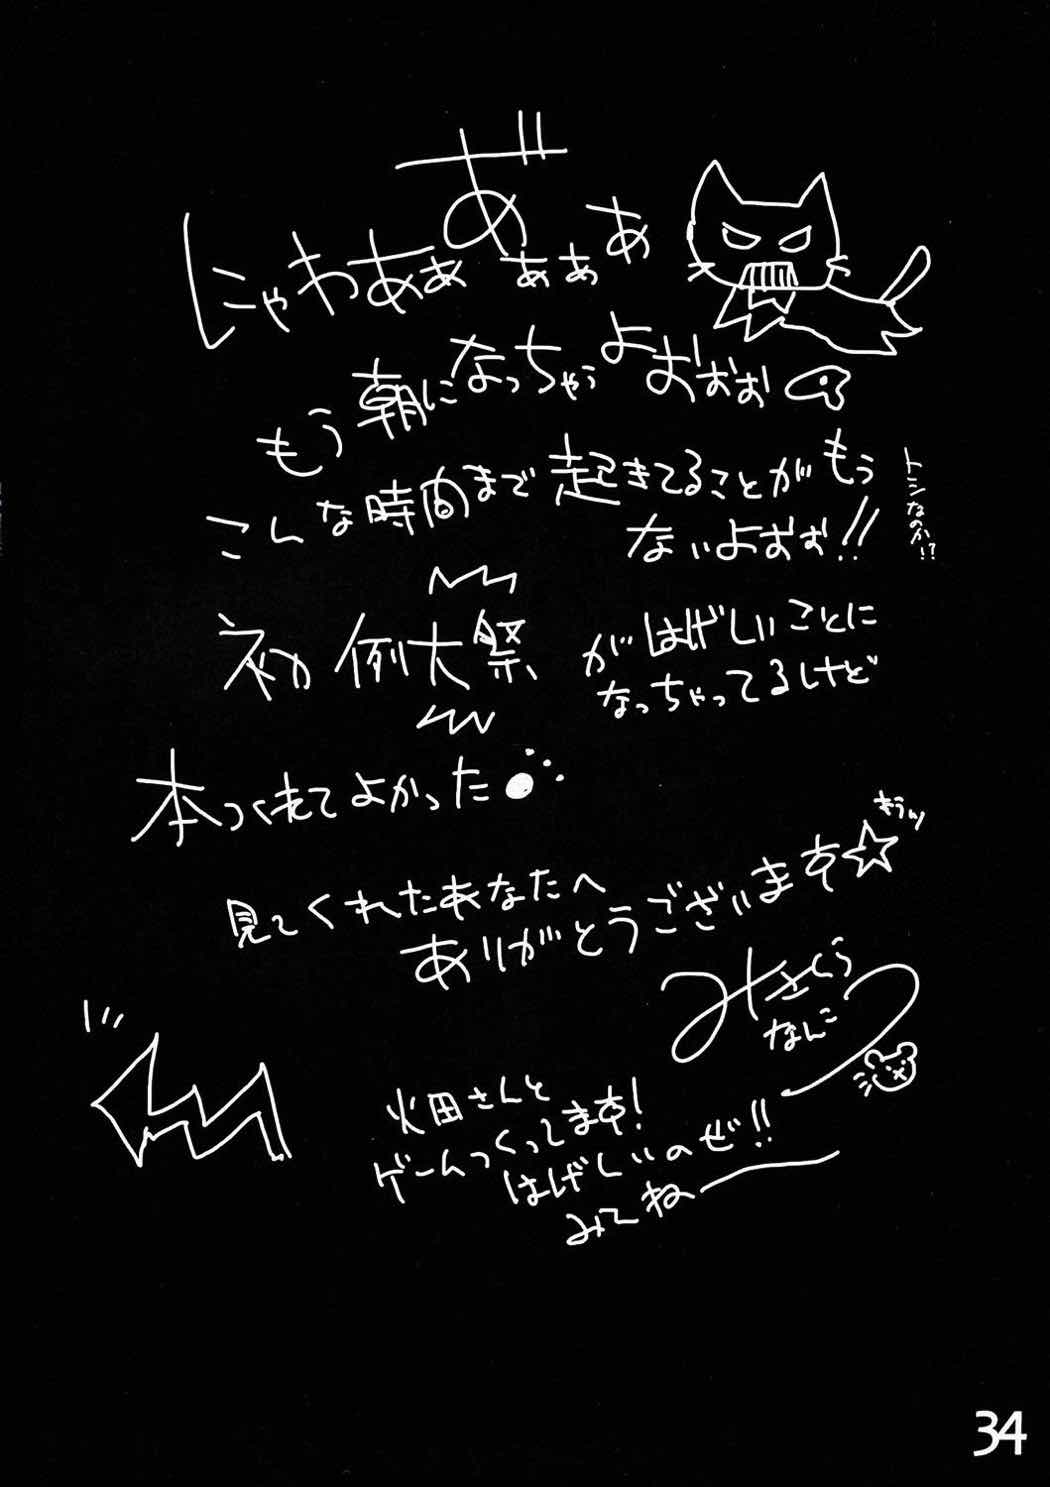 にゃわああああぁぁあ
もう朝になっちゃうよおおぉぉ
こんな時間まで起きてることがもう
ないよおぉ!!
トシなのか!?
初例大祭
がはげしいことに
なっちゃってるけど
本つくれてよかった
見てくれたあなたへ
ありがとうございます☆
きらりッ
みさくら
なんこつ
火田さんと
ゲームつくってます!
はげしいのぜ!!
みてねー
34